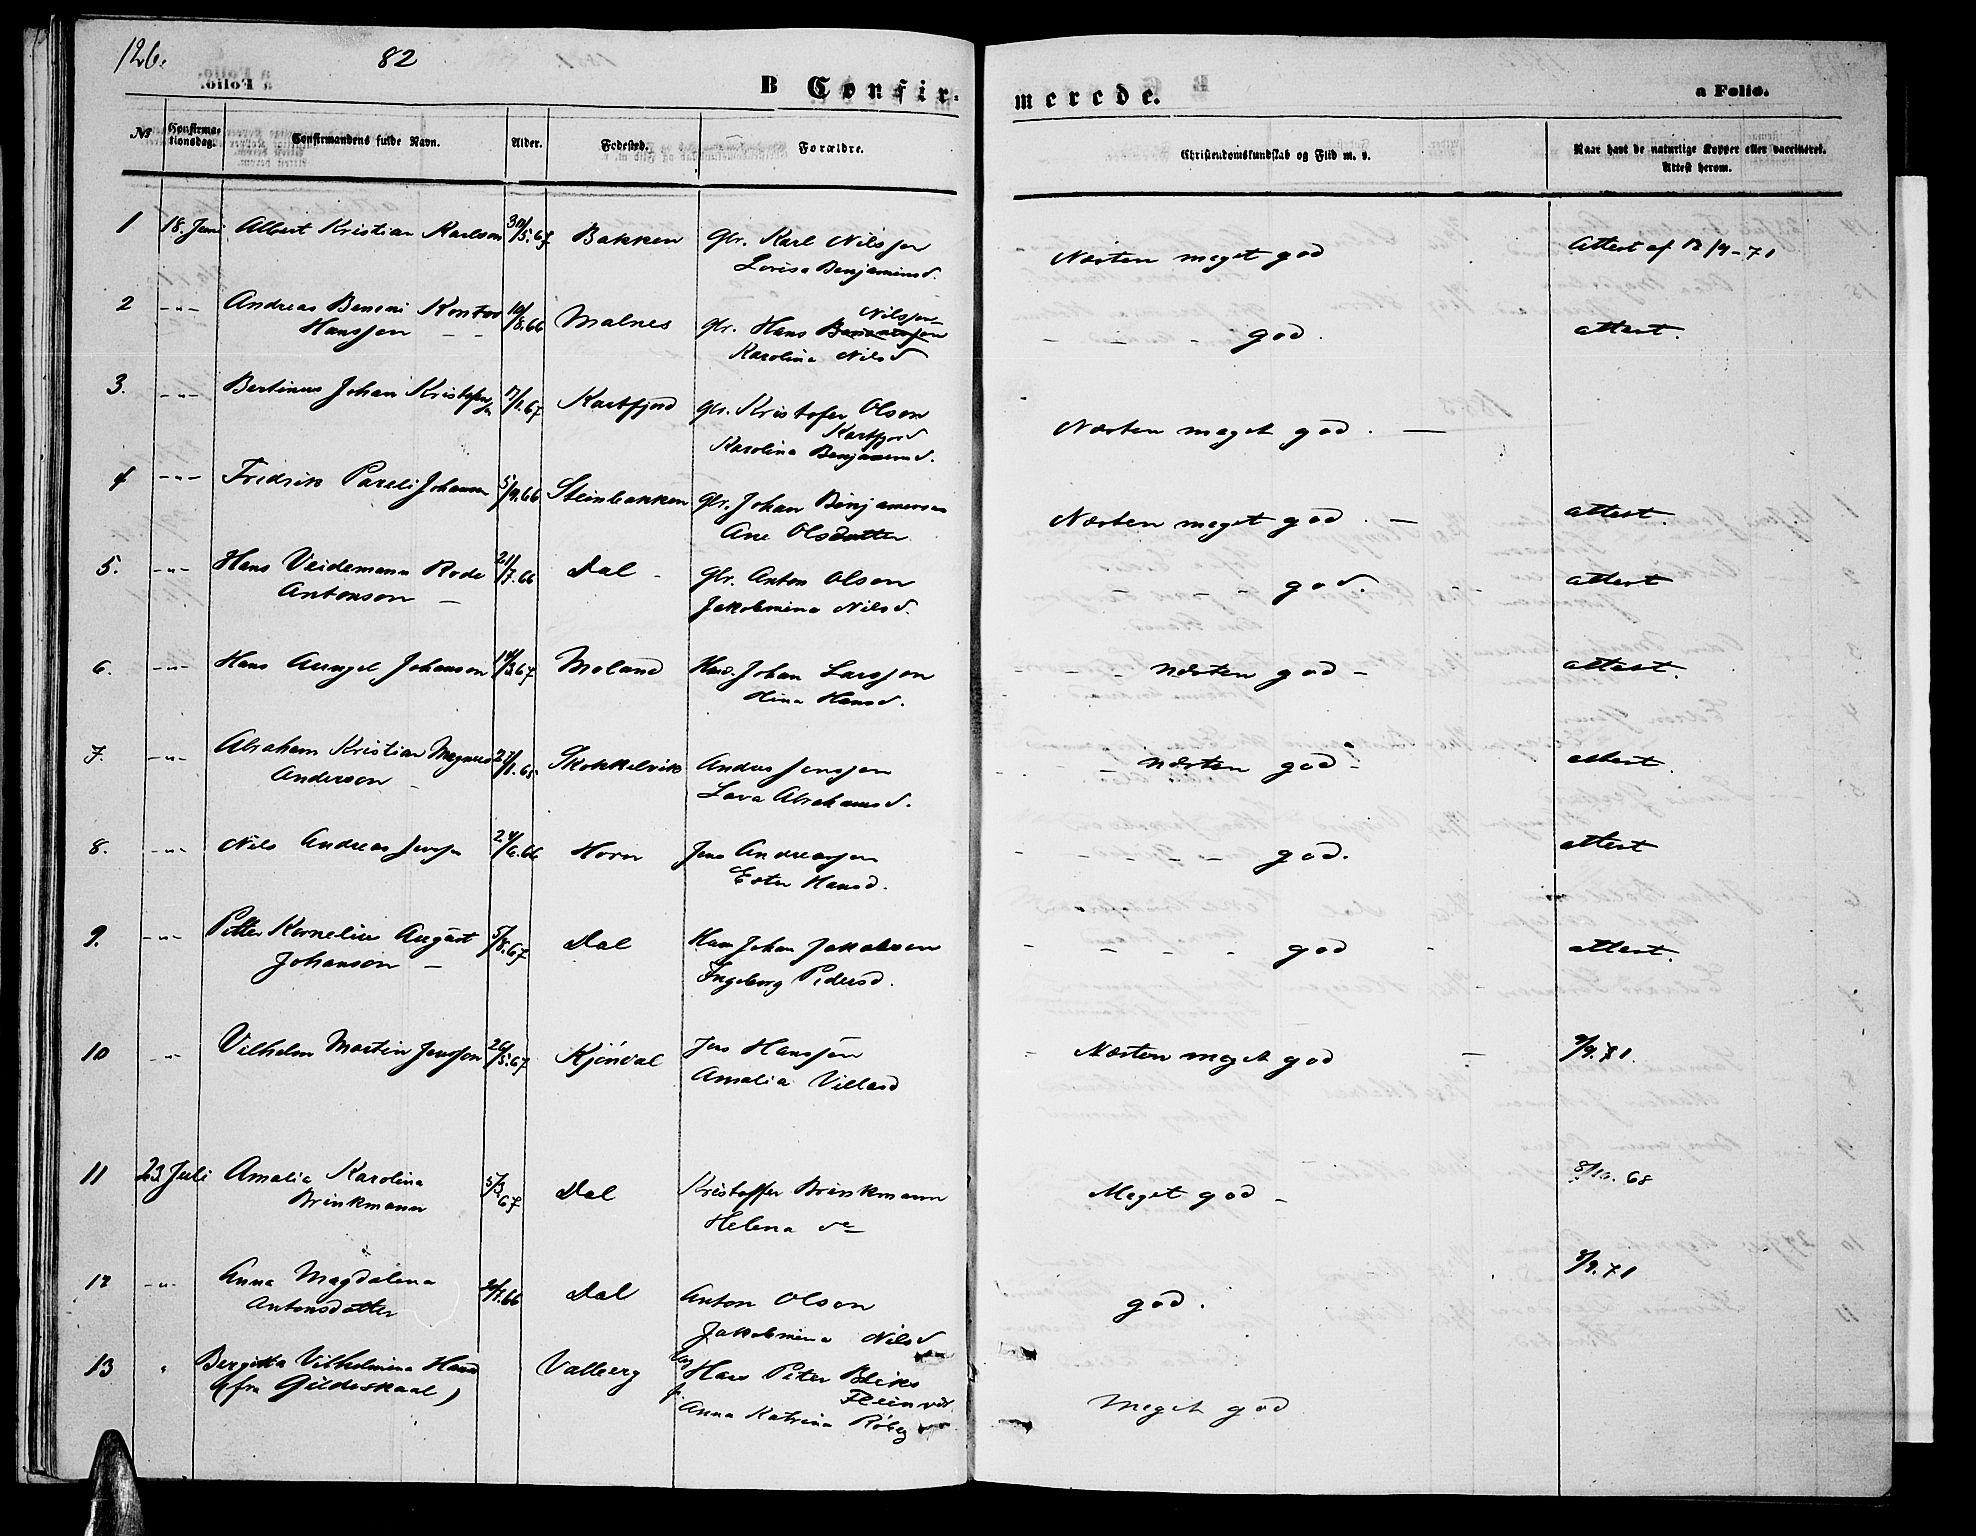 126.
82
a Folio.
B Confir-
merede.
a Folio.
No
Confirma-
tionsdag.
Confirmandens fulde Navn.
Alder.
Fødested.
Forældre.
Christendomskundskab og Flid m. v.
Naar havt de naturlige Kopper eller vaccineret.
Attest herom.
1 18. Juni Albert Kristian Karlson 30/5.67 Bakken Gbr. Karl Nilssøn
Lovisa Benjaminsd.
Næsten meget god Attest af 12/9-71
2 -"- Andreas Benoni Kontor 10/8.66 Malnes Gbr. Hans Nilssøn
Hanssøn - - Karolina Nilsd
god. attest.
3. -"- Bertinus Johan Kristofersøn 17/1.67 Kartfjord Gbr. Kristofer Olson
Kartfjord
Karolina Benjaminsd.
Næsten meget god. -
4 -"- Fridrik Pareli Johansen 5/9.66 Steinbakken Gbr. Johan Benjaminsen
Ane Olsdatter
Næsten meget god. - attest.
5. -"- Hans Veidemann Rode 21/7.66 Dal - Gbr. Anton Olson
Antonson - Jakobmina Nilsd.
- - - - god. attest
6. -"- Hans Aungel Johanson /3.67 Moland Husm. Johan Larssøn
Hansd.
- - - næsten god - attest.
7. -"- Abraham Kristian Magnus 27/1.65 Skokkelvik Anders Jenssøn
Anderson - Lava Abrahamsd.
- næsten god - attest.
8. -"- Nils Andreas Jenssøn 24/6.66 Horn Jens Andreassøn
Ester Hansd.
- - - - god. attest
9. -"- Petter Kornelius August 5/8.67 Dal Husm Johan Jakobson
Johanson - Ingeborg Pedersd.
- - - - god - attest.
10 -"- Vilhelm Martin Jenssøn 26/5.67 Kjøndal Jens Hanssøn
Amalia Villasd
- Næsten meget god - 9/9.71.
11 23 Juli Amalia Karolina 5/3 67 Dal Kristoffer Brinkmann
Brinkmann Helena de
Meget god - 8/10. 68
12 -"- Anna Magdalena 66 Dal Anton Olson
Antonsdatter Jakobmina Nilsd
god. 9/9.71
13 " Bergitta Vilhelmina Hansd Valberg Hans Peter Bleks
(fra Gildeskaal) Fleinvær
Anna Katrina
Meget god